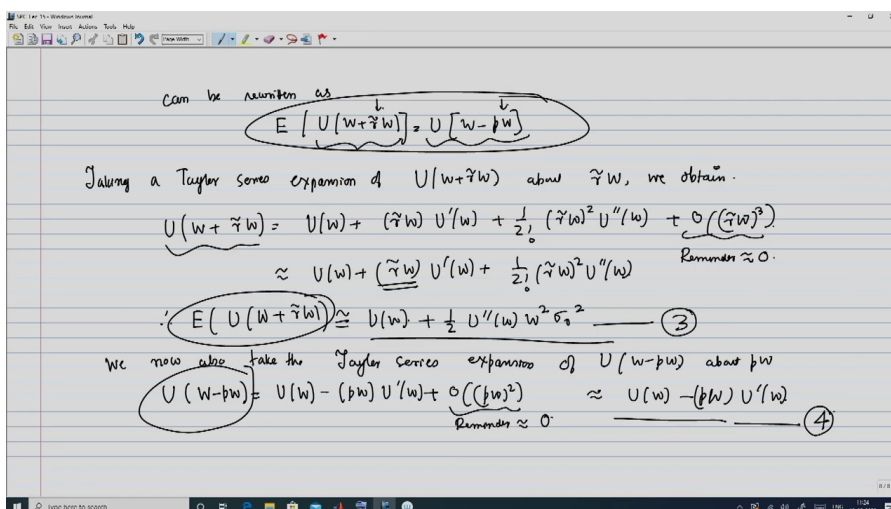 SPC Lec 15 - Windows Journal
File Edit View Insert Actions Tools Help
Page Width
can be rewritten as
E [U(W+r̃W)] = U[W-pW]
Taking a Taylor series expansion of U(W+r̃W) about r̃W, we obtain.
U(W+r̃W) = U(W) + (r̃W) U'(W) + 1/2! (r̃W)² U''(W) + O((r̃W)³)
Remainder ≈ 0.
≈ U(W) + (r̃W) U'(W) + 1/2! (r̃W)² U''(W)
∴ E(U(W+r̃W)) ≅ U(W) + 1/2 U''(W) W² σ₀² ③
We now also take the Taylor series expansion of U(W-pW) about pW
U(W-pW) = U(W) - (pW) U'(W) + O((pW)²) ≈ U(W) - (pW) U'(W) ④
Remainder ≈ 0
8/8
Type here to search
ENG
11:24